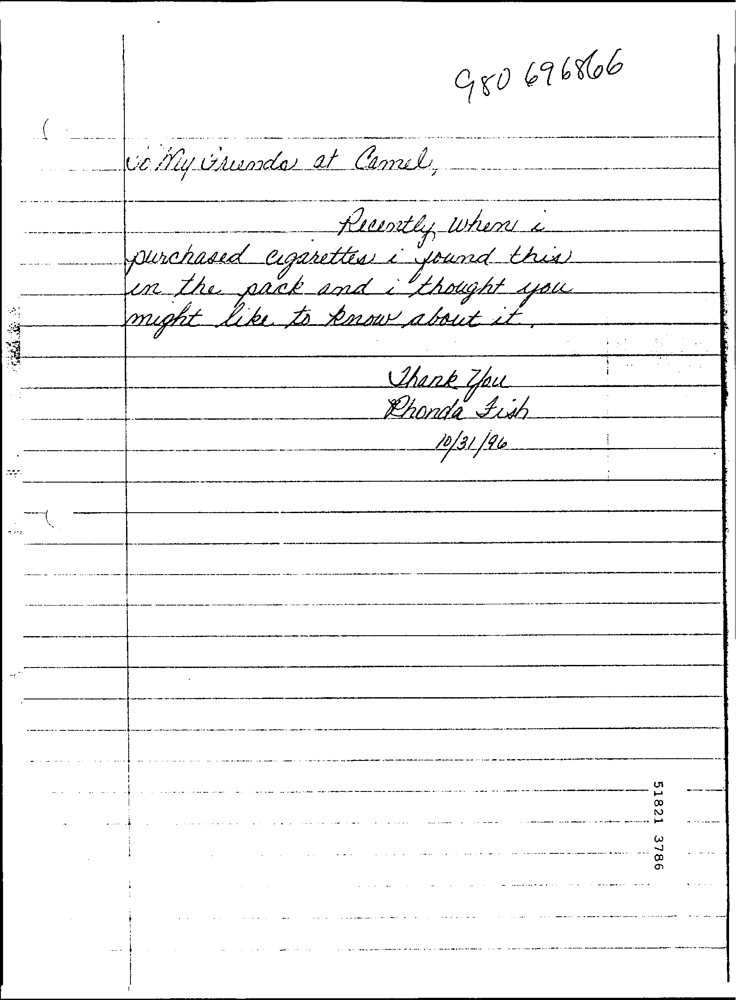 980 696866
To My Friends at Camel,
Recently, when i
purchased cigarettes i found this
in the pack and i thought you
might like to know about it.
Thank You
Rhonda Fish
10/31/96
51821 3786